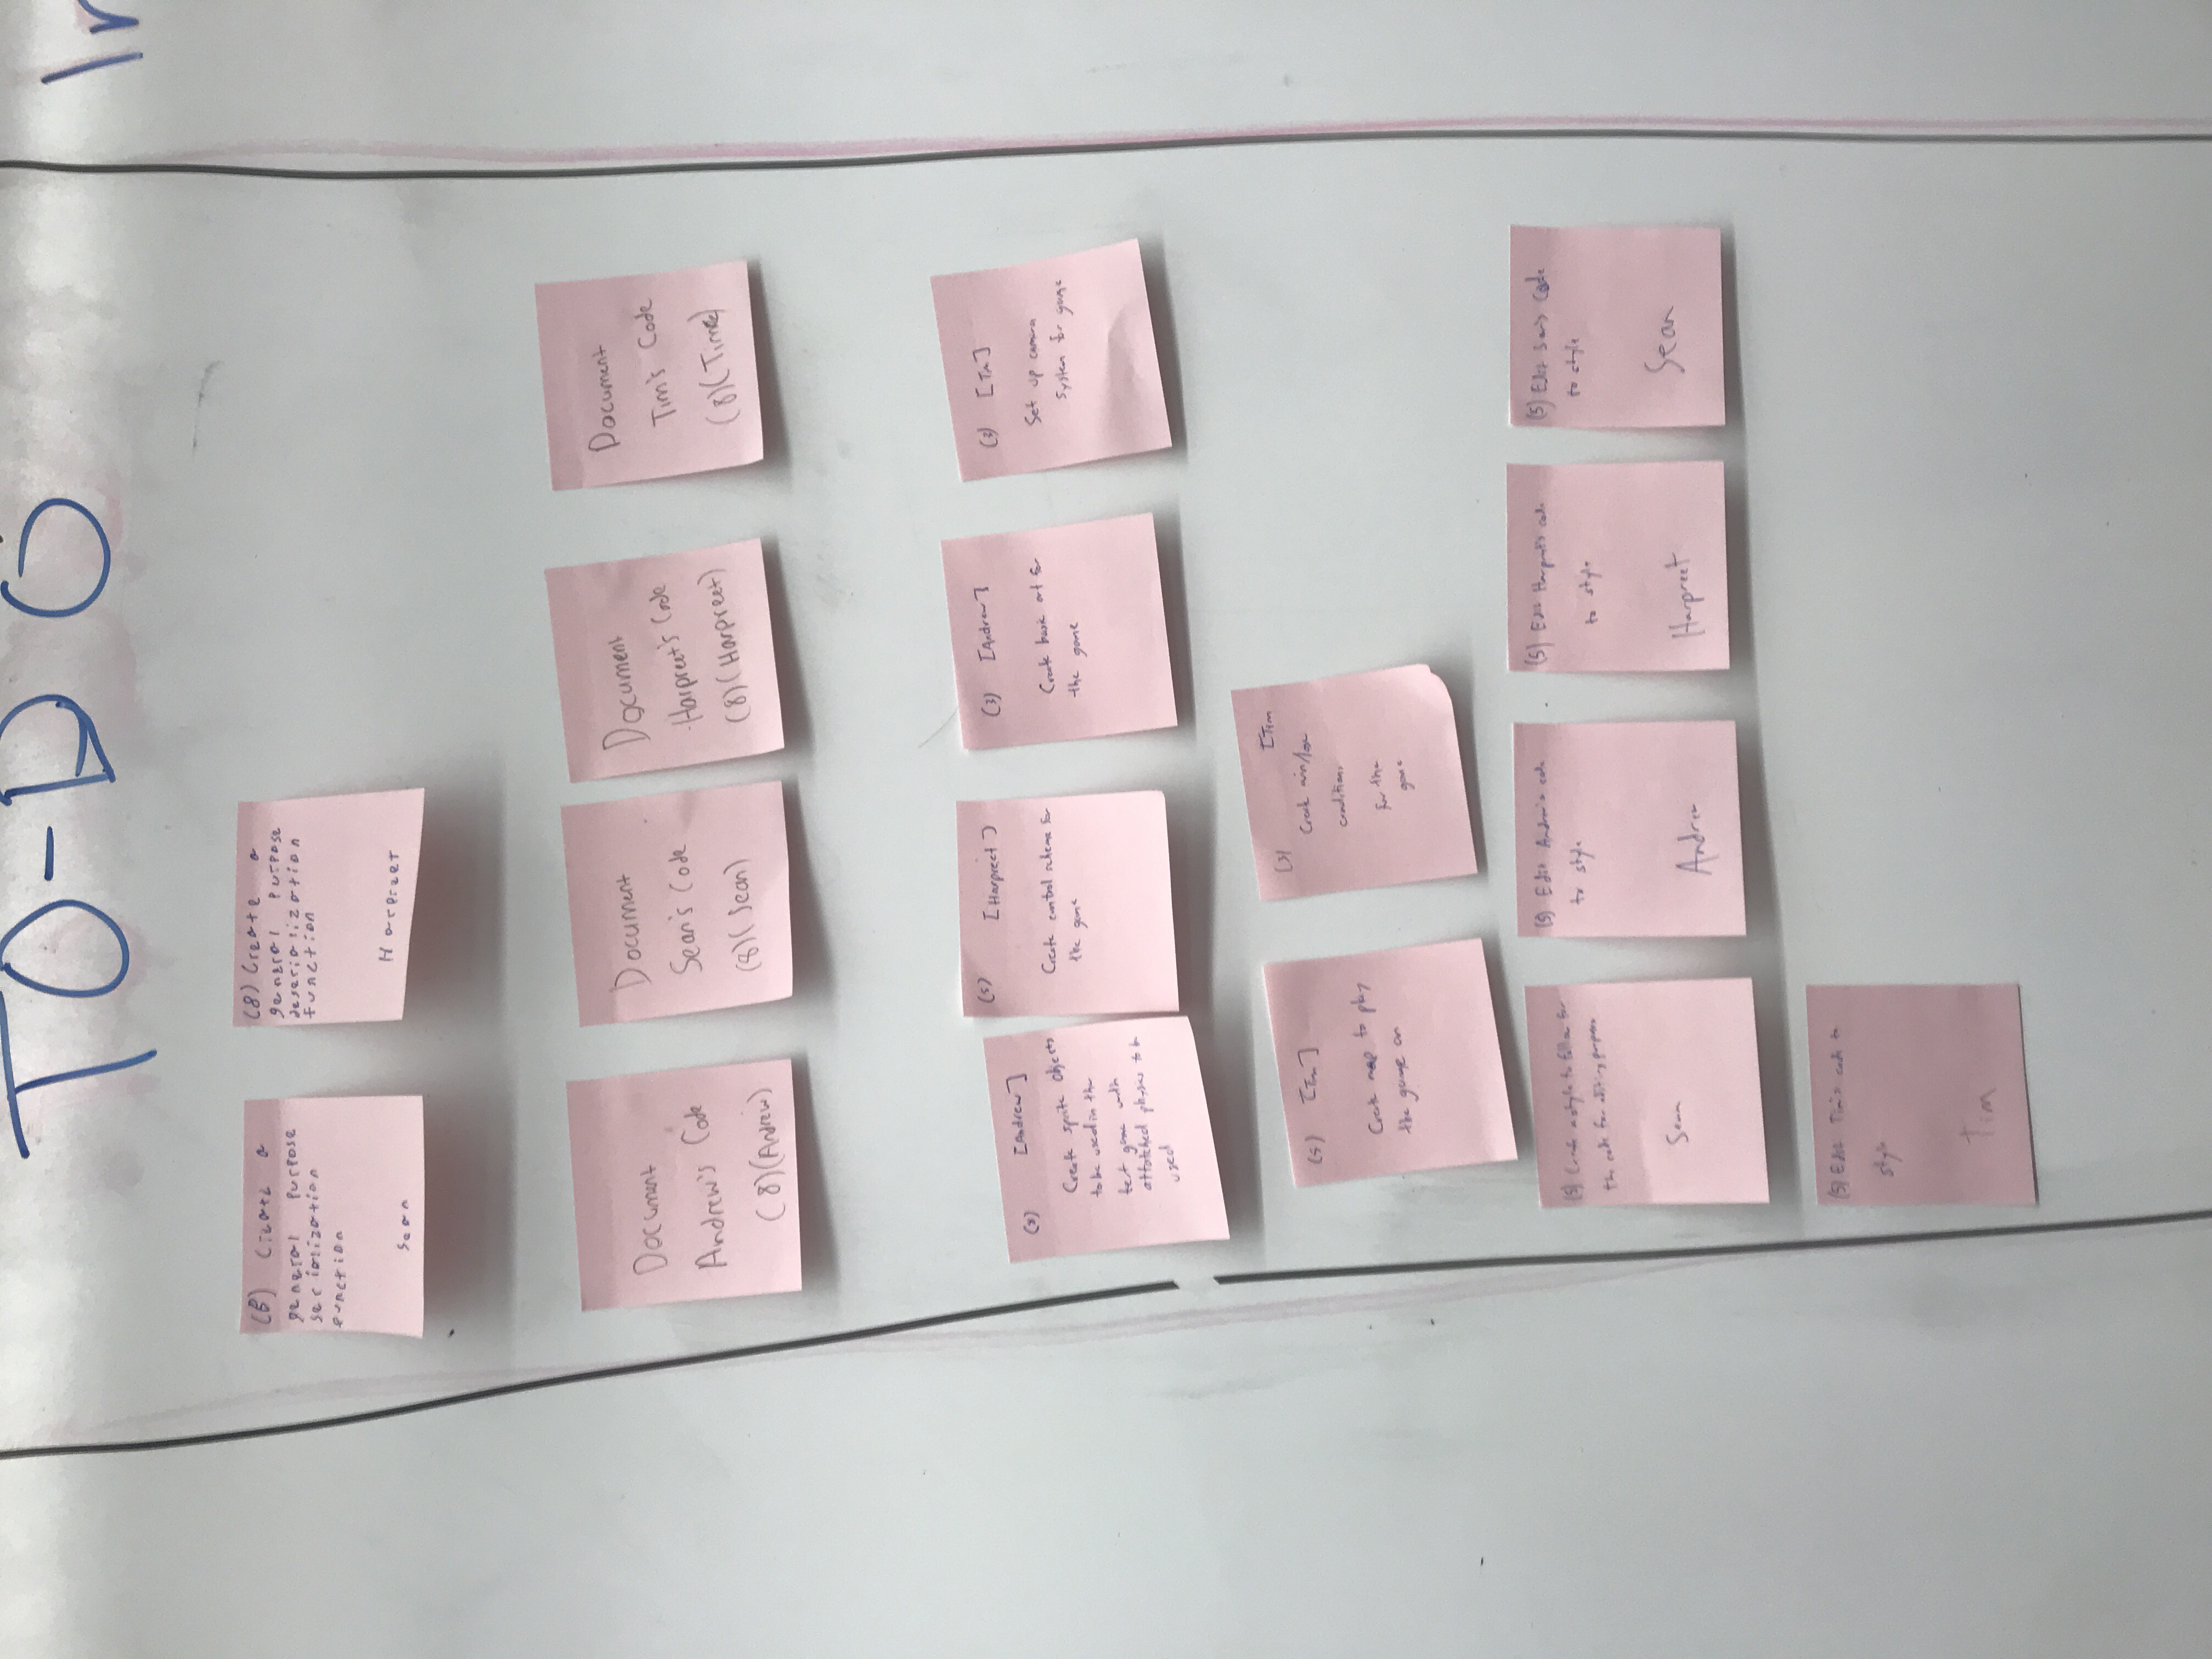 TO-DO
In
(8) Create a
general purpose
serialization
function
Sean
(8) Create a
general purpose
deserialization
function
Harpreet
Document
Andrew's Code
(8)(Andrew)
Document
Sean's Code
(8)(Sean)
Document
Harpreet's Code
(8)(Harpreet)
Document
Tim's Code
(8)(Tim)
[Andrew]
Create sprite objects
to be used in the
test game with
attatched physics to be
used
(5) [Harpreet]
Create control scheme for
the game
(3) [Andrew]
Create basic art for
the game
(3) [Tim]
Set up camera
system for game
(5) [Tim]
Create map to play
the game on
(3) [Tim
Create win/lose
conditions
for the
game
(5) Create a style to follow for
the code for editing purposes
Sean
(5) Edit Andrew's code
to style
Andrew
(5) Edit Harpreet's code
to style
Harpreet
(5) Edit Sean's Code
to style
Sean
(5) Edit Tim's code to
style
Tim